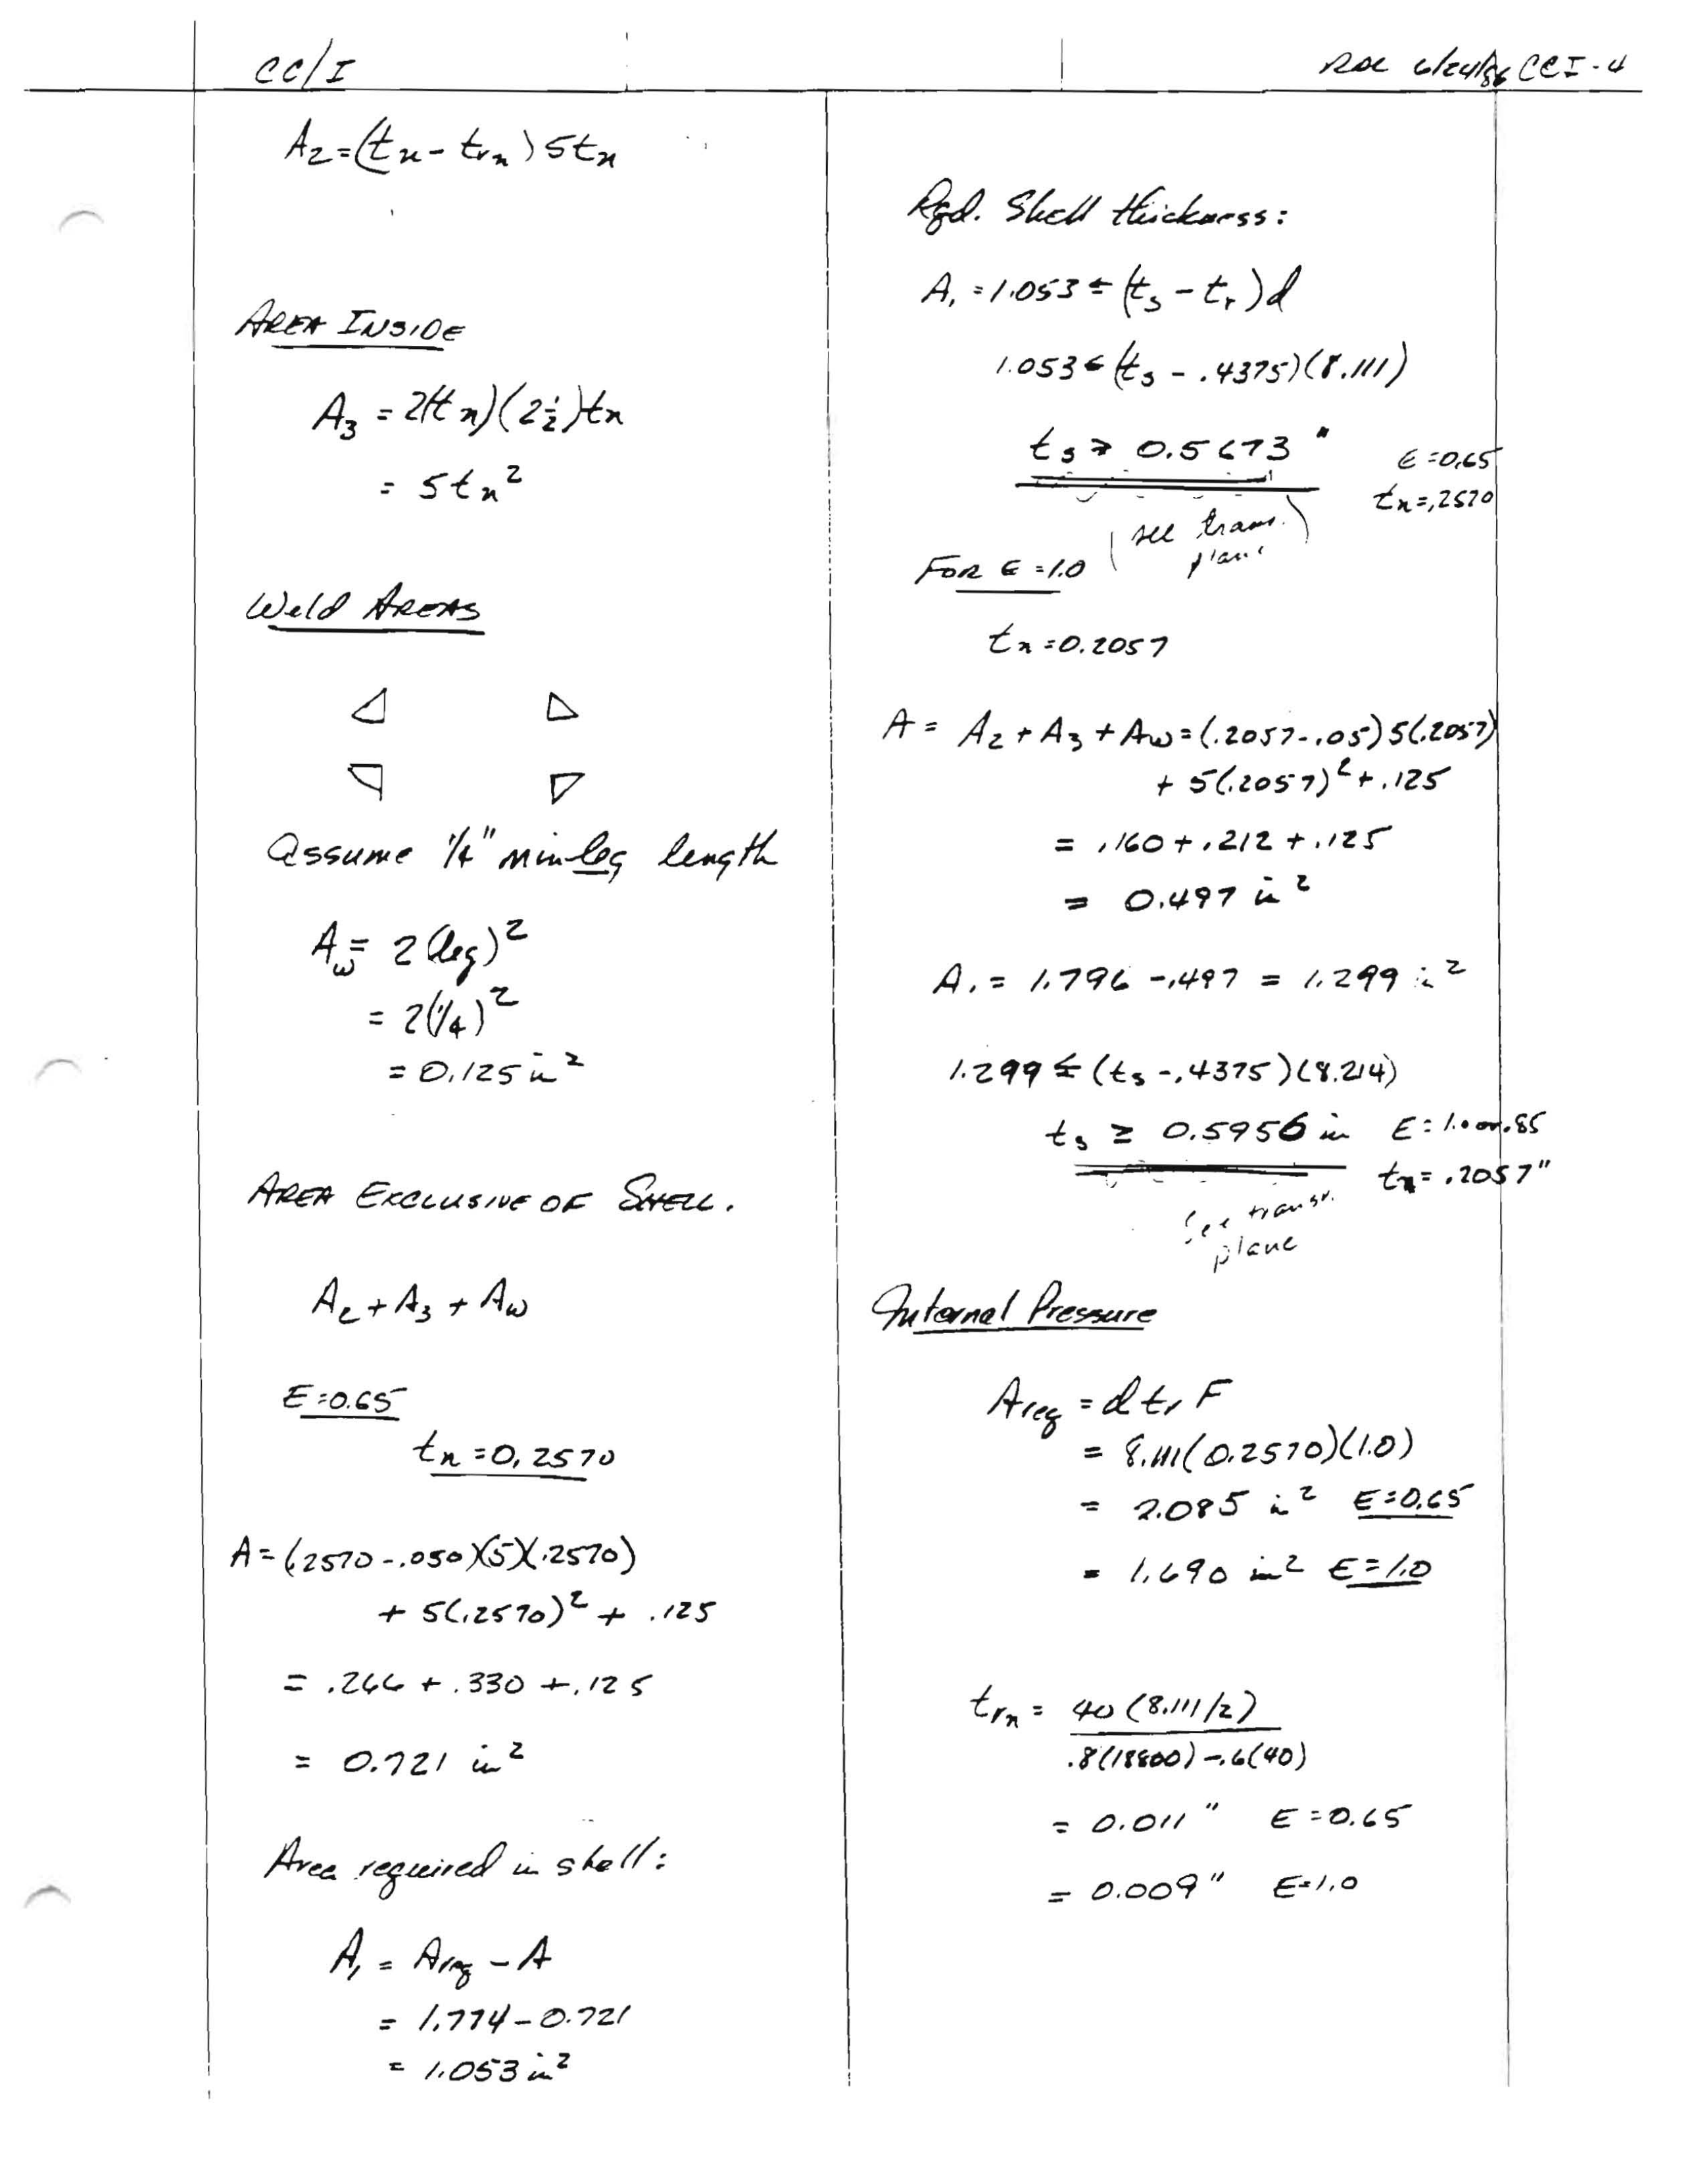 CC/I
6/24/86 CCI-4
A₂=(tₙ-tᵣₙ)5tₙ
AREA INSIDE
A₃ = 2(tₙ)(2½)tₙ
= 5tₙ²
Weld AREAS
Assume 1/4" min leg length
A_w = 2(leg)²
= 2(1/4)²
= 0.125 in²
AREA EXCLUSIVE OF SHELL.
A₂ + A₃ + A_w
E=0.65
tₙ=0.2570
A=(.2570-.050)(5)(.2570)
+ 5(.2570)² + .125
= .266 + .330 + .125
= 0.721 in²
Area required in shell:
A₁ = Areq - A
= 1.774 - 0.721
= 1.053 in²
Rqd. Shell thickness:
A₁ = 1.053 ≤ (tₛ - tᵣ)d
1.053 ≤ (tₛ - .4375)(8.111)
tₛ ≥ 0.5673 "
E=0.65
tₙ=.2570
(see trans. plane)
FOR E=1.0
tₙ=0.2057
A = A₂ + A₃ + A_w = (.2057-.05)5(.2057)
+ 5(.2057)² + .125
= .160 + .212 + .125
= 0.497 in²
A₁ = 1.796 - .497 = 1.299 in²
1.299 ≤ (tₛ - .4375)(8.214)
tₛ ≥ 0.5956 in E=1.0 or .85
tₙ=.2057"
See transv.
plane
Internal Pressure
Areq = d tᵣ F
= 8.111(0.2570)(1.0)
= 2.085 in² E=0.65
= 1.690 in² E=1.0
tᵣₙ = 40(8.111/2)
.8(18800)-.6(40)
= 0.011" E=0.65
= 0.009" E=1.0